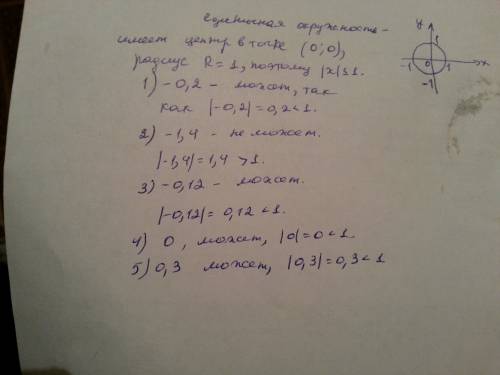 единичная окружность -
имеет центр в точке (0;0),
радиус R = 1, поэтому |x|≤1.
1) -0,2 - может, так
как |-0,2| = 0,2<1.
2) -1,4 - не может.
|-1,4| = 1,4 >1.
3) -0,12 - может.
|-0,12| = 0,12 <1.
4) 0, может, |0|=0<1.
5) 0,3 может, |0,3|=0,3<1
y
1
-1 0 1 x
-1